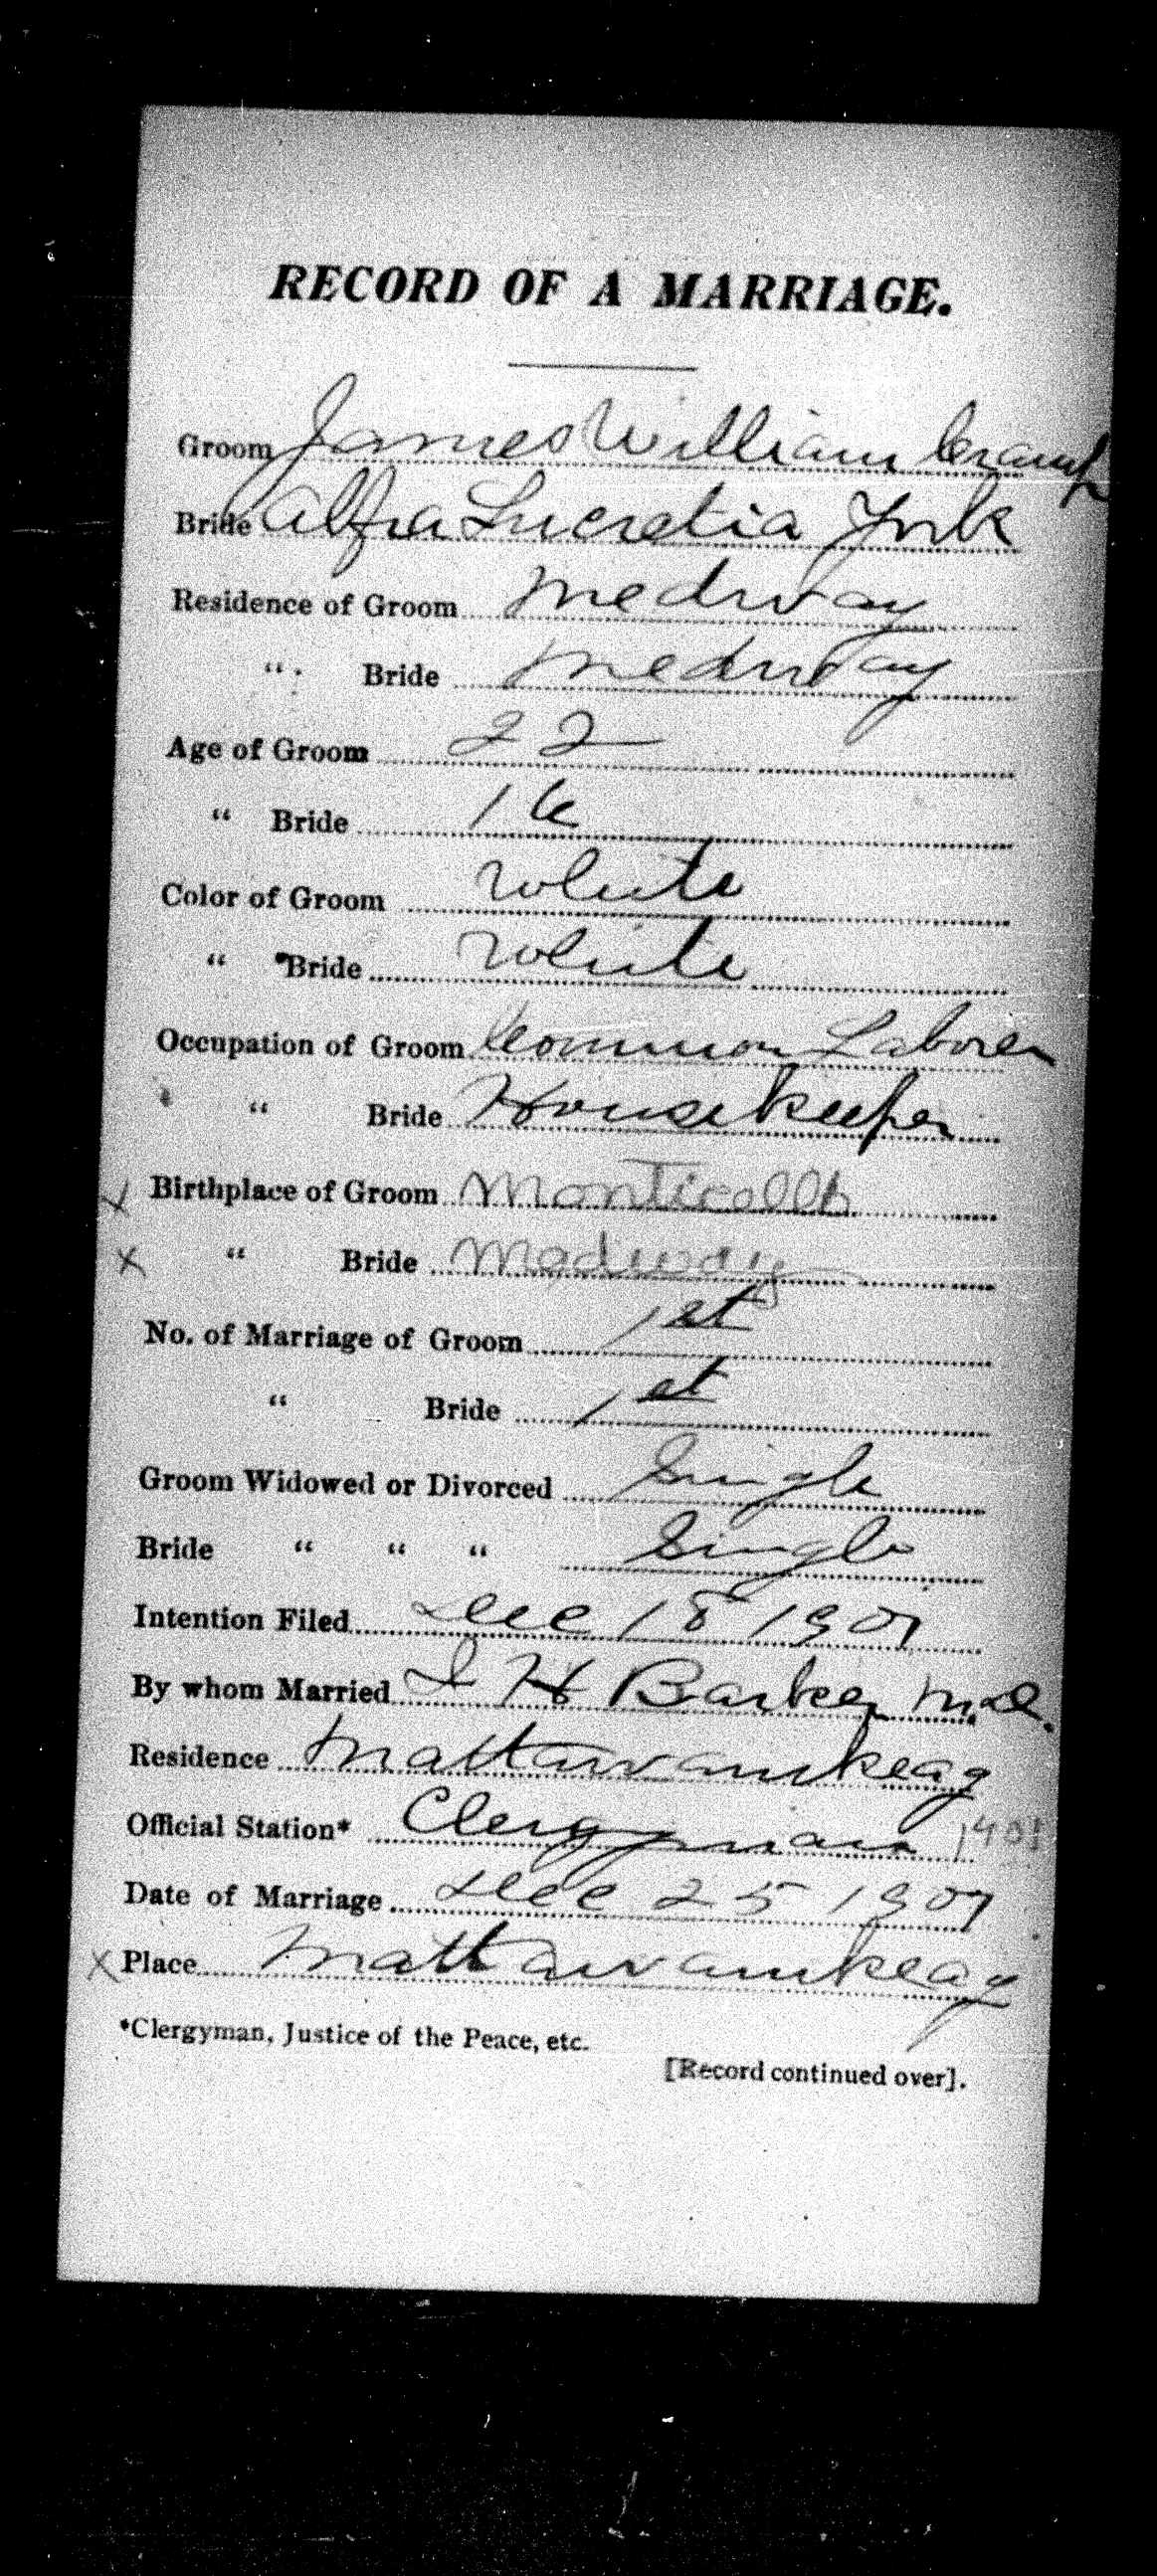 RECORD OF A MARRIAGE.
Groom James William Cramp
Bride Alfra Lucretia York
Residence of Groom Medway
" Bride Medway
Age of Groom 22
" Bride 16
Color of Groom White
" Bride White
Occupation of Groom Common Laborer
" Bride Housekeeper
x Birthplace of Groom Monticello
x " Bride Medway
No. of Marriage of Groom 1st
" Bride 1st
Groom Widowed or Divorced Single
Bride " " " Single
Intention Filed Dec 18 1907
By whom Married I H Barker
Residence Mattawamkeag
Official Station* Clergyman
Date of Marriage Dec 25 1907
x Place Mattawamkeag
*Clergyman, Justice of the Peace, etc.
[Record continued over].